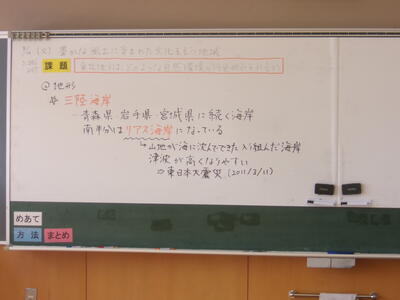 豊かな風土に育まれた文化を
課題
東北地方は、どのような自然環境の
@地形
三陸海岸
青森県 岩手県 宮城県に続く海岸
南半分はリアス海岸になっている
山地が海に沈んでできた入り組んだ海岸
津波が高くなりやすい
東日本大震災 (2011/3/11)
めあて
方法 まとめ